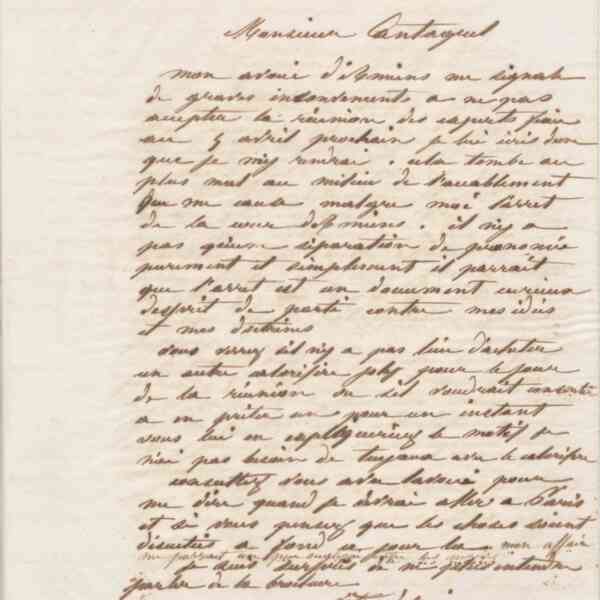 Monsieur Cantagrel
mon avoué d'Amiens me signale
de graves inconvenients a ne pas
accepter la réunion des experts fixée
au 5 avril prochain je lui écris donc
que je m'y rendrai . cela tombe au
plus mal au milieu de l'accablement
que me cause malgré moi l'arret
de la cour d'Amiens . il n'y a
pas qu'une séparation de prononcée
purement et simplement il parrait
que l'arret est un document curieux
d'esprit de parti contre mes idées
et mes doctrines
vous verrez s'il n'y a pas lieu d'acheter
un autre calorifere pour le jour
de la réunion ou s'il voudrait consentir
a en prêter un pour un instant
vous lui en expliqueriez le motif je
n'ai pas besoin de tuyaux avec le calorifere
consultez vous avec l'avoué pour
me dire quand je devrai aller a Paris
et si vous pensez que les choses soient
discutées a fond pour la mon affaire
me parrait
je suis surpris de ne plus entendre
parler de la brochure